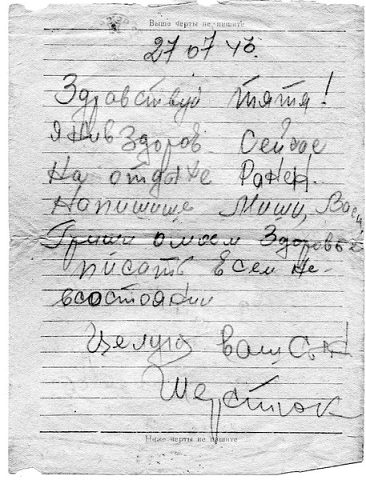 Выше черты не пишите
27 07 43.
Здравствуй тятя!
Я жив здоров. Сейчас
На отдыхе Ранен.
Напишите Миши, Васи,
Гриши о моем Здоровье
писать всем не-
всостоянии
Целую ваш Сын
Шерстюк
Ниже черты не пишите